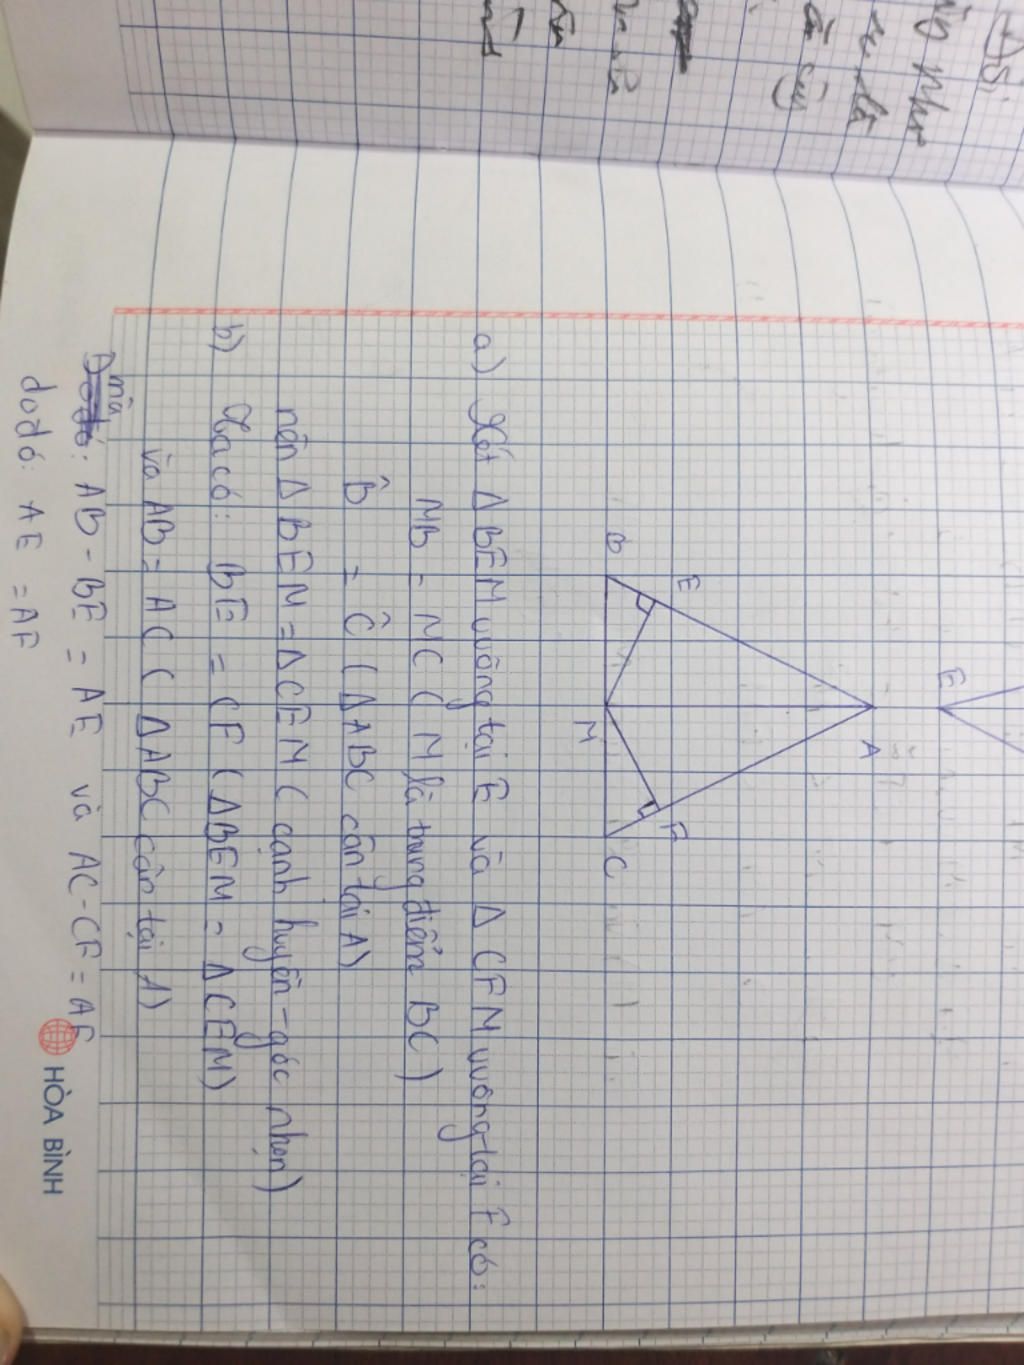 E
A
E
F
B
M
C
a) Xét Δ BEM vuông tại E và Δ CFM vuông tại F có:
MB = MC ( M là trung điểm BC)
B̂ = Ĉ ( ΔABC cân tại A)
nên Δ BEM = ΔCEM ( cạnh huyền - góc nhọn)
b) Ta có: BE = CF ( ΔBEM = ΔCEM)
và AB = AC ( ΔABC cân tại A)
mà
: AB - BE = AE và AC - CF = AF
do đó: AE = AF
HÒA BÌNH